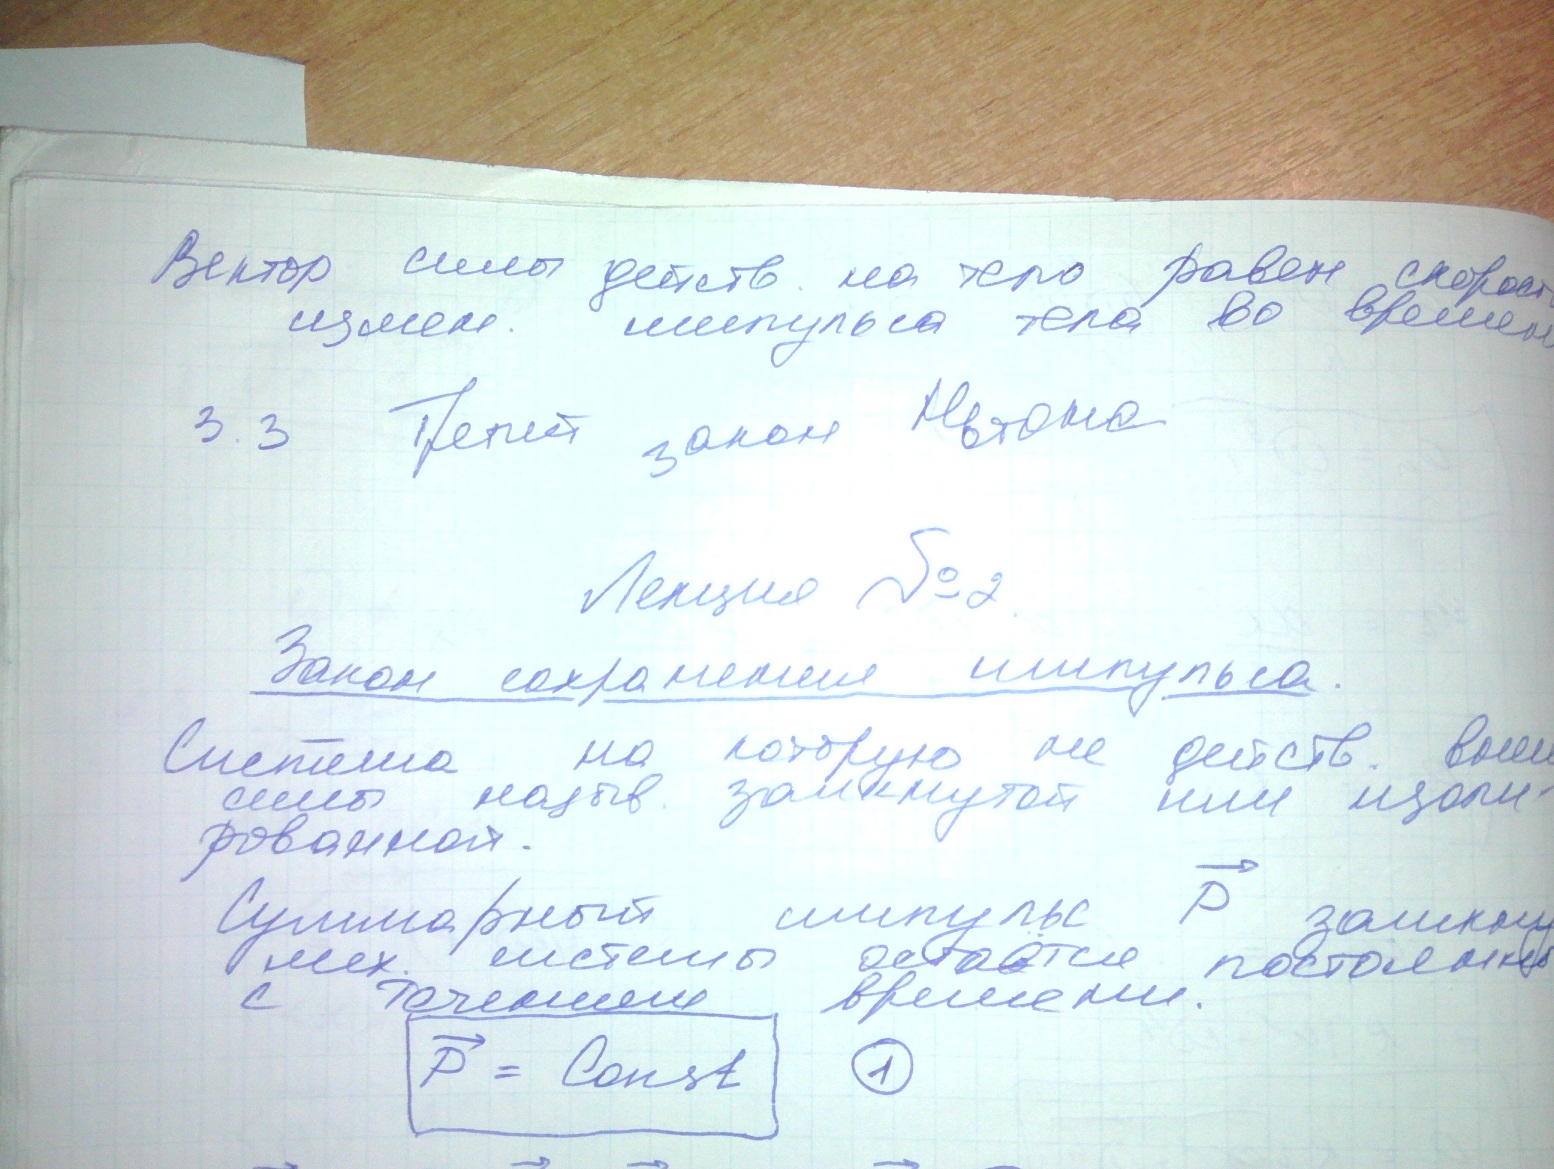 Вектор силы действ. на тело равен скорост
измен. импульса тела во времен
3.3 Третий закон Ньютона
Лекция №2
Закон сохранения импульса.
Система на которую не действ. внеш
силы назыв. замкнутой или изоли-
рованной.
Суммарный импульс P⃗ замкну
мех. системы остаётся постоянны
с течением времени.
P⃗ = Const ①